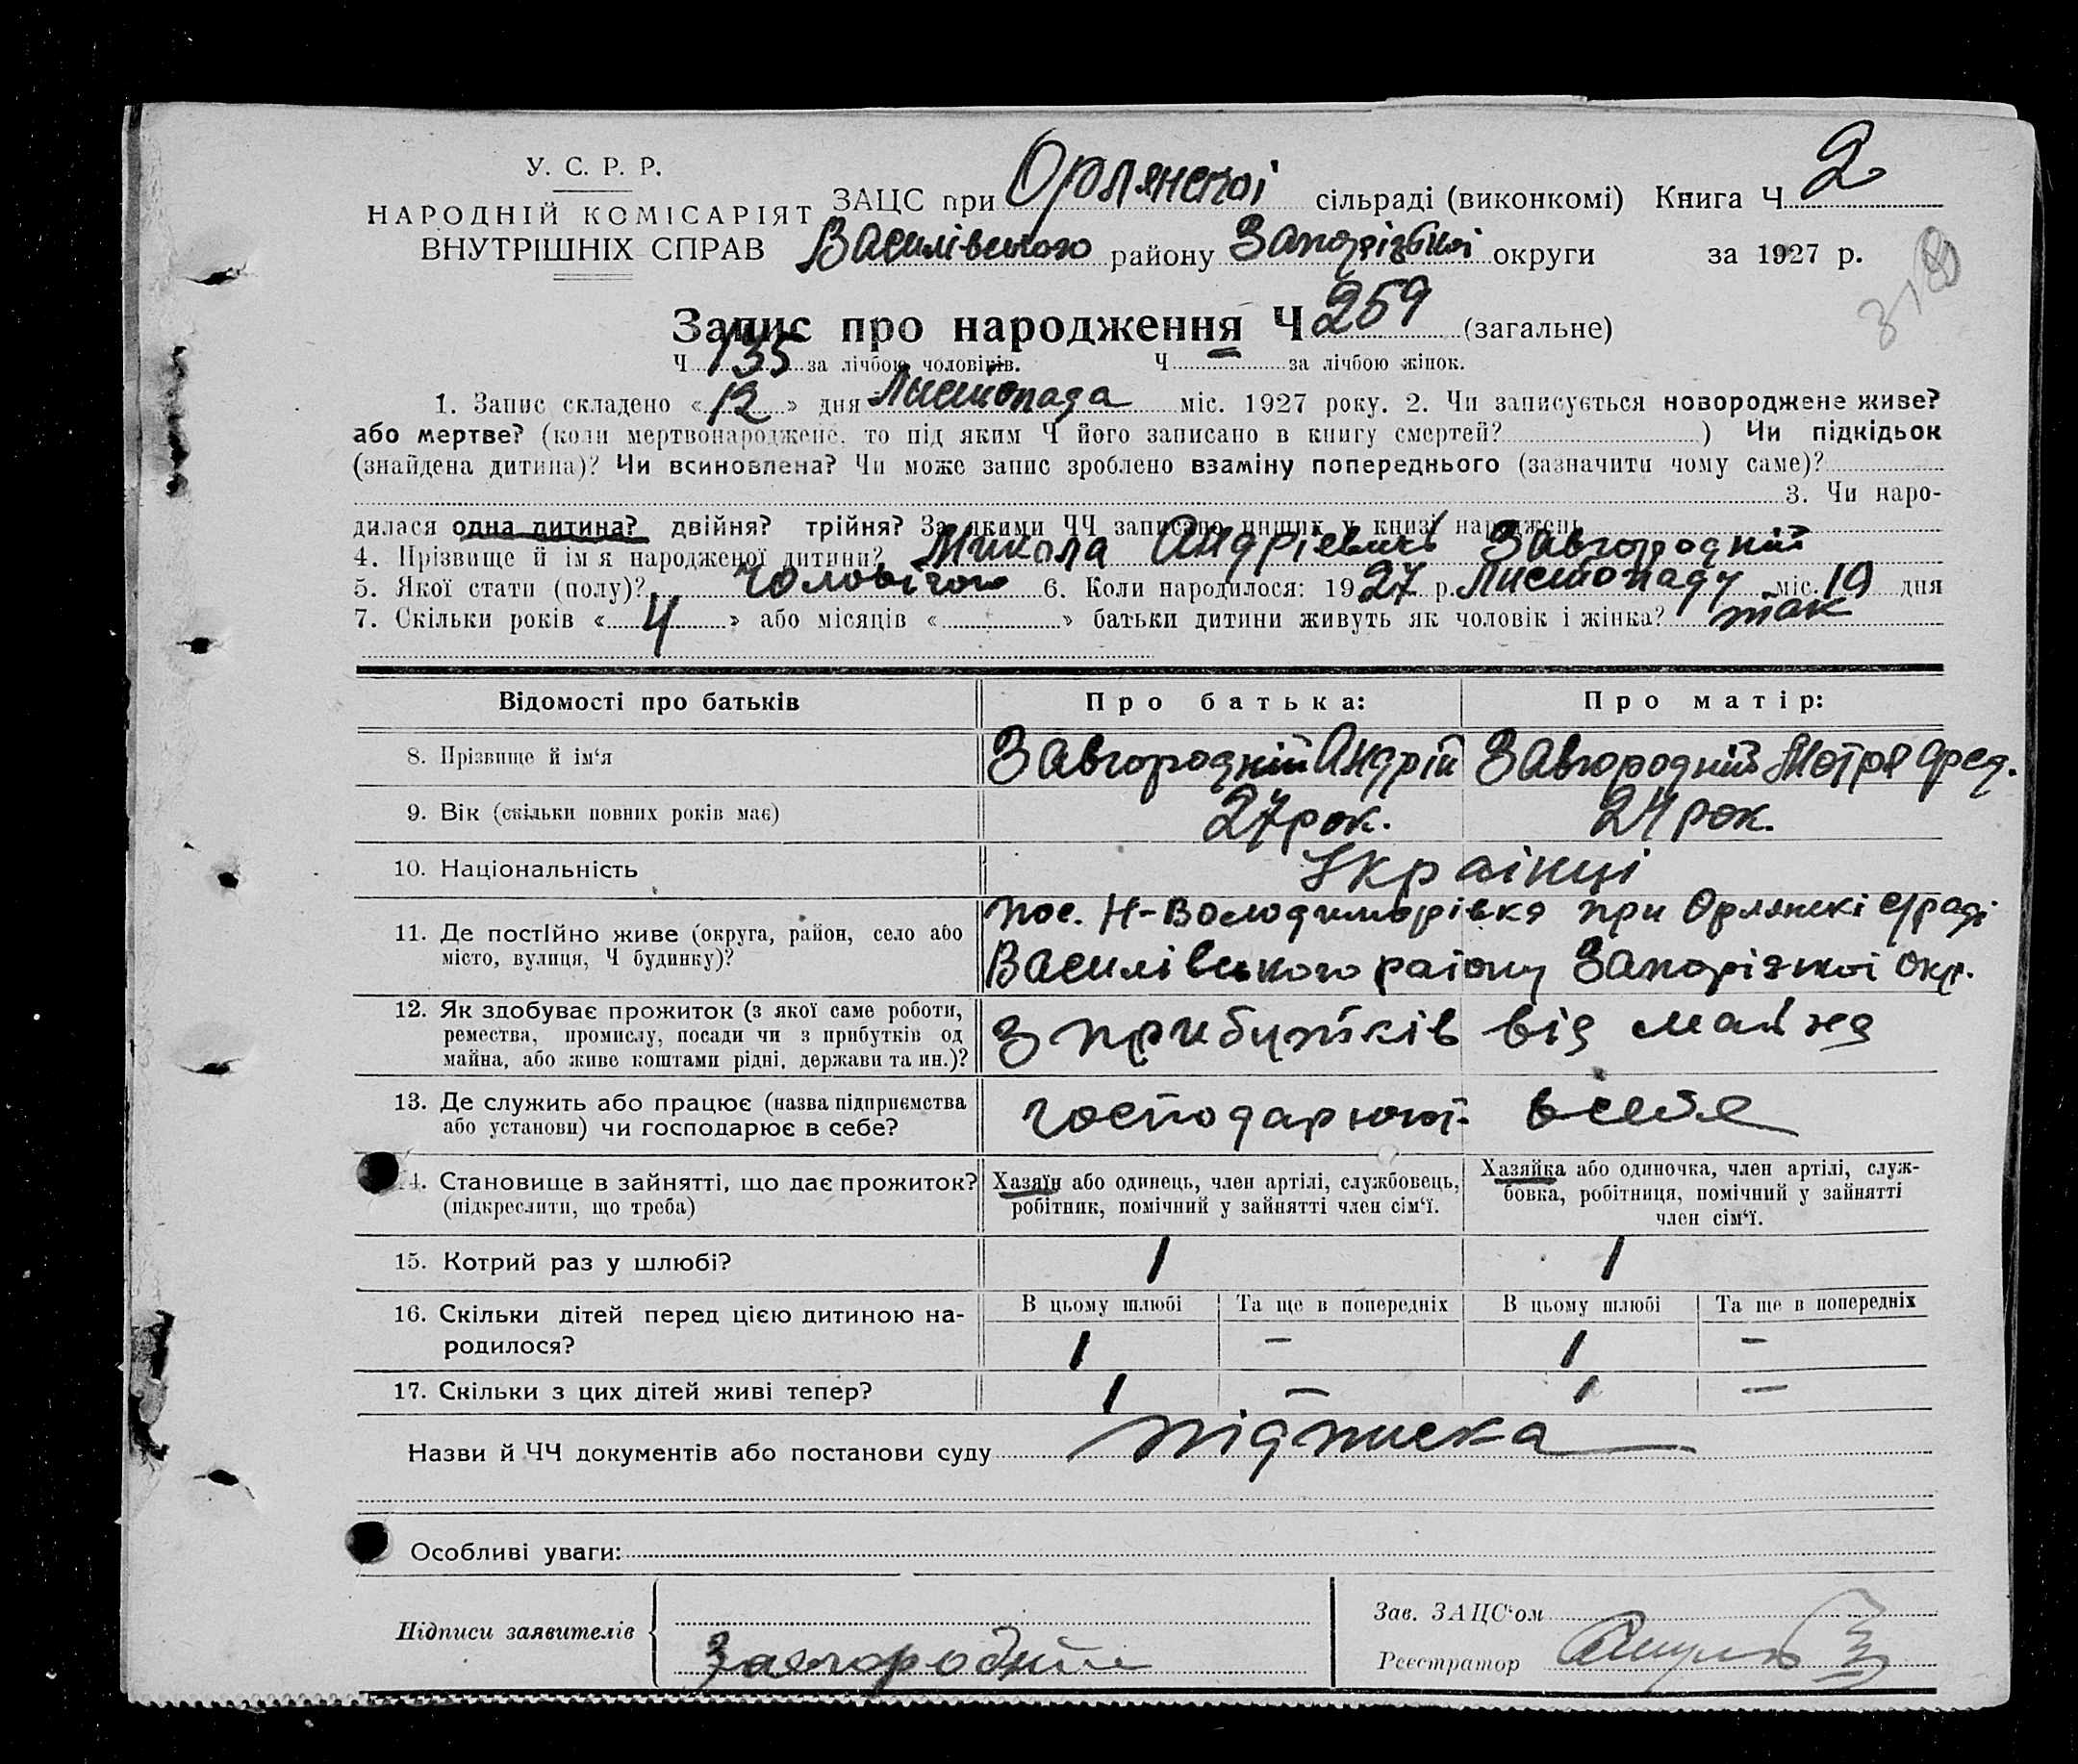 У. С. Р. Р.
НАРОДНІЙ КОМІСАРІЯТ
ВНУТРІШНІХ СПРАВ
ЗАЦС при Орлянской сільраді (виконкомі) Книга Ч 2
Василівського району Запорізької округи за 1927 р.
Запис про народження Ч 259 (загальне)
Ч 135 за лічбою чоловіків. Ч — за лічбою жінок.
1. Запис складено « 12 » дня Листопада міс. 1927 року. 2. Чи записується новороджене живе?
або мертве? (коли мертвонароджене, то під яким Ч його записано в книгу смертей? ) Чи підкідьок
(знайдена дитина)? Чи всиновлена? Чи може запис зроблено взаміну попереднього (зазначити чому саме)?
3. Чи наро-
дилася одна дитина? двійня? трійня? За якими ЧЧ записано инших у книзі народжень
4. Прізвище й ім'я народженої дитини? Микола Андріевичь Завгородній
5. Якої стати (полу)? чоловічого 6. Коли народилося: 1927 р. Листопаду міс. 19 дня
7. Скільки років « 4 » або місяців « » батьки дитини живуть як чоловік і жінка? так
Відомості про батьків Про батька: Про матір:
8. Прізвище й ім'я Завгородній Андрій Завгородній Мотря Фед.
9. Вік (скільки повних років має) 27 рок. 24 рок.
10. Національність Українці
11. Де постійно живе (округа, район, село або місто, вулиця, Ч будинку)?
пос. Н-Володимирівка при Орлянскі с/раді
Василівського району Запорізкої окр.
12. Як здобуває прожиток (з якої саме роботи,
ремества, промислу, посади чи з прибутків од
майна, або живе коштами рідні, держави та ин.)?
з прибутків від майна
13. Де служить або працює (назва підприємства
або установи) чи господарює в себе?
господарюют. в себе
14. Становище в зайнятті, що дає прожиток?
(підкреслити, що треба)
Хазяїн або одинець, член артілі, службовець,
робітник, помічний у зайнятті член сім'ї.
Хазяйка або одиночка, член артілі, служ-
бовка, робітниця, помічний у зайнятті
член сім'ї.
15. Котрий раз у шлюбі? 1 1
16. Скільки дітей перед цією дитиною на-
родилося?
В цьому шлюбі Та ще в попередніх В цьому шлюбі Та ще в попередніх
1 — 1 —
17. Скільки з цих дітей живі тепер? 1 — 1 —
Назви й ЧЧ документів або постанови суду підписка
Особливі уваги:
Підписи заявителів
Завгородній
Зав. ЗАЦС'ом
Реєстратор